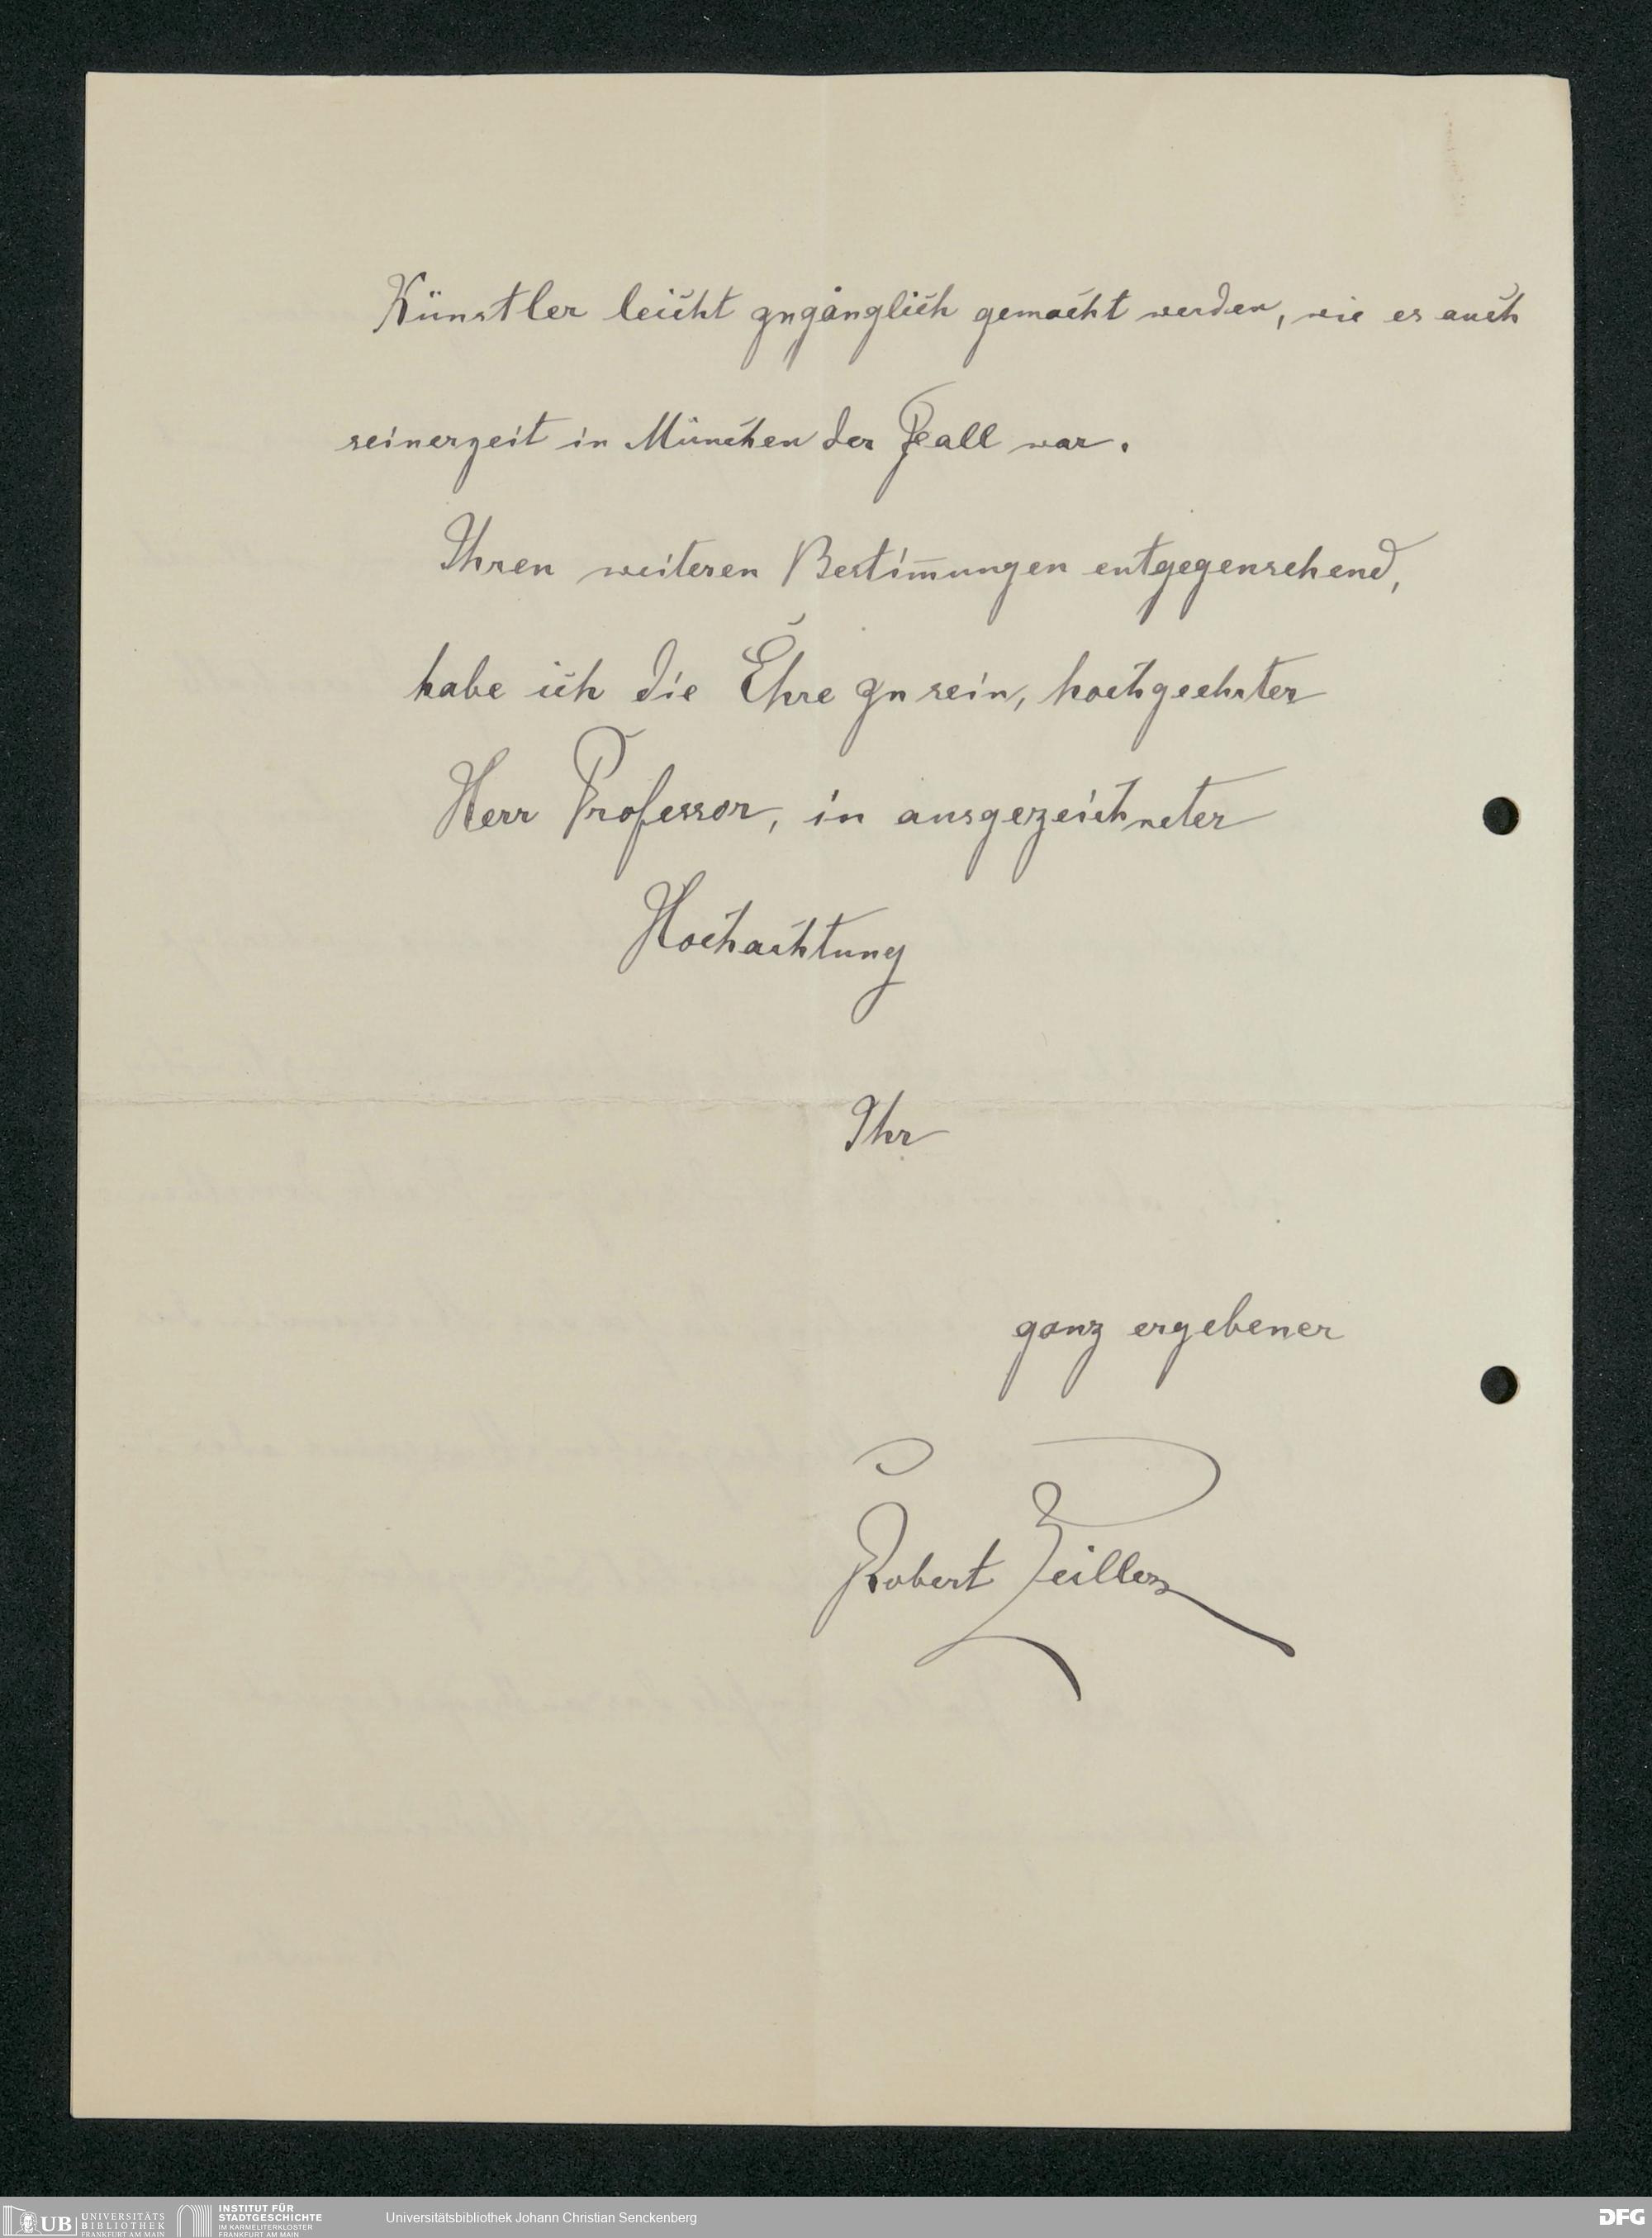 Künstler leicht zugänglich gemacht werden, wie es auch
seinerzeit in München der Fall war.
Ihren weiteren Bestim̅ungen entgegensehend,
habe ich die Ehre zu sein, hochgeehrter
Herr Professor, in ausgezeichneter
Hochachtung
Ihr
ganz ergebener
Robert Zeiller
UB UNIVERSITÄTS
BIBLIOTHEK
FRANKFURT AM MAIN
INSTITUT FÜR
STADTGESCHICHTE
IM KARMELITERKLOSTER
FRANKFURT AM MAIN
Universitätsbibliothek Johann Christian Senckenberg
DFG